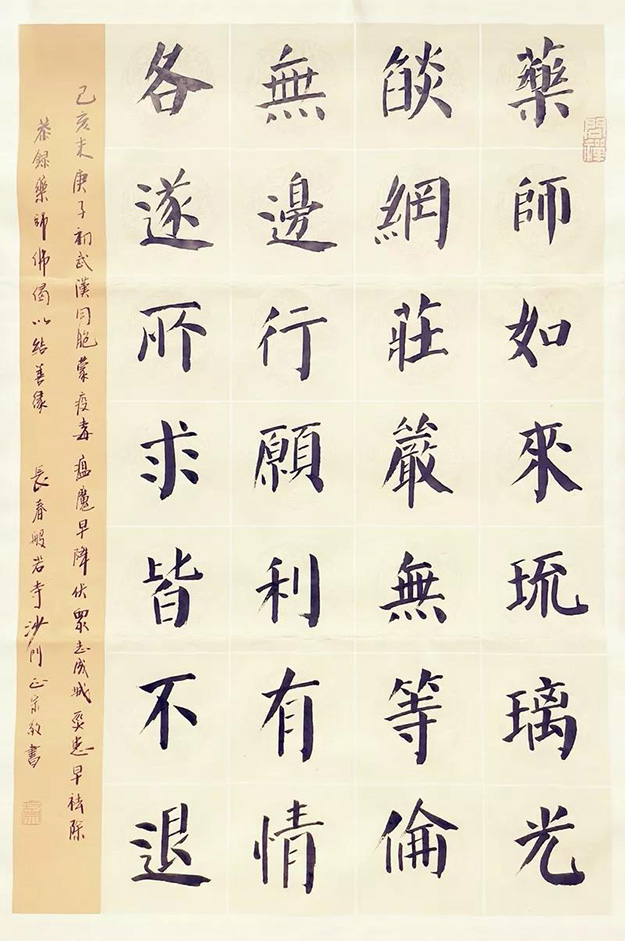 藥師如來琉璃光
燄網莊嚴無等倫
無邊行願利有情
各遂所求皆不退
己亥末庚子初武漢同胞蒙疫毒瘟魔早降伏眾志成城災患早祛除
恭錄藥師佛偈以結善緣 長春般若寺沙門正宗敬書
問禪